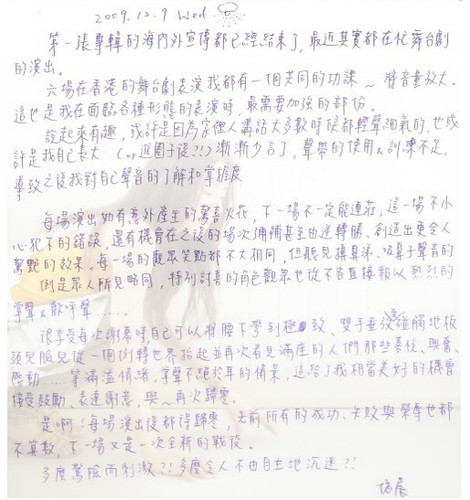 2009.12.9 Wed
第一張專輯的海內外宣傳都已經結束了,最近其實都在忙舞台劇
的演出。
六場在香港的舞台劇表演我都有一個共同的功課~將音量放大。
這也是我在面臨各種形態的表演時,最需要加強的部份。
說起來有趣,或許是因為家裡人講話大多數時候都輕聲細氣的,也或
許是我自己長大(or進團子後?!)漸漸少言了,聲帶的使用&訓練不足,
導致之後我對自己聲音的了解和掌握度
每場演出如有意外產生的驚喜火花,下一場不一定能連莊,這一場不小
心犯下的錯誤,還有機會在之後的場次彌補甚至由逆轉勝,創造出更令人
驚艷的效果。每一場的觀眾笑點都不大相同,但聽見擤鼻涕、吸鼻子聲音的
倒是眾人所見略同,特別討喜的角色觀眾也從不吝直接報以熱烈的
掌聲&歡呼聲......
很享受每次謝幕時自己可以將腰下彎到極致、雙手垂放碰觸地板
頭兒臉兒從一個倒轉世界抬起並再次看見滿座的人們,那些喜悅、興奮、
感動......等滿溢情緒,掌聲不絕於耳的情景,這給了我相當美好的機會
接受鼓勵、表達謝意,與~再次歸零。
是啊!每場演出後都得歸零,先前所有的成功、失敗與榮辱也都
不算數,下一場又是一次全新的戰役。
多麼驚險而刺激?!多麼令人不由自主地沉迷?!